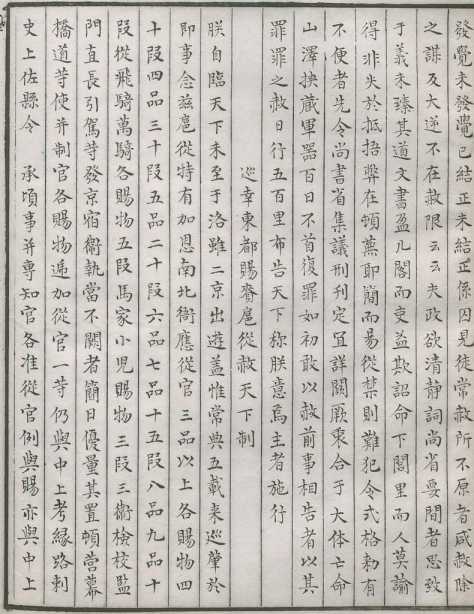 發覺未發覺已結正未結正係囚見徒常赦所不原者咸赦除
之謀及大逆不在赦限云云夫政欲清静詞尚省要間者思致
于義未臻其道文書盈几閣而吏益欺詔命下閭里而人莫諭
得非失於抵捂弊在頓蕪即簡而易從禁則難犯令式格勅有
不便者先令尚書省集議刑刊定宜詳關厥衷合于大体亡命
山澤挾蔵軍器百日不首復罪如初敢以赦前事相告者以其
罪罪之赦日行五百里布告天下称朕意焉主者施行
巡幸東都賜賚扈從赦天下制
朕自臨天下未至于洛雖二京出遊蓋惟常典五載来巡肇於
即事念兹扈從特有加恩南北衙應從官三品以上各賜物四
十段四品三十段五品二十段六品七品十五段八品九品十
段從飛騎萬騎各賜物五段馬家小児賜物三段三衛檢校監
門直長引駕等發京宿衛執當不闕者簡日優量其置頓營幕
橋道等使并制官各賜物遞加從官一等仍與中上考縁路刺
史上佐縣令 承頃事并專知官各准從官例與賜亦與中上